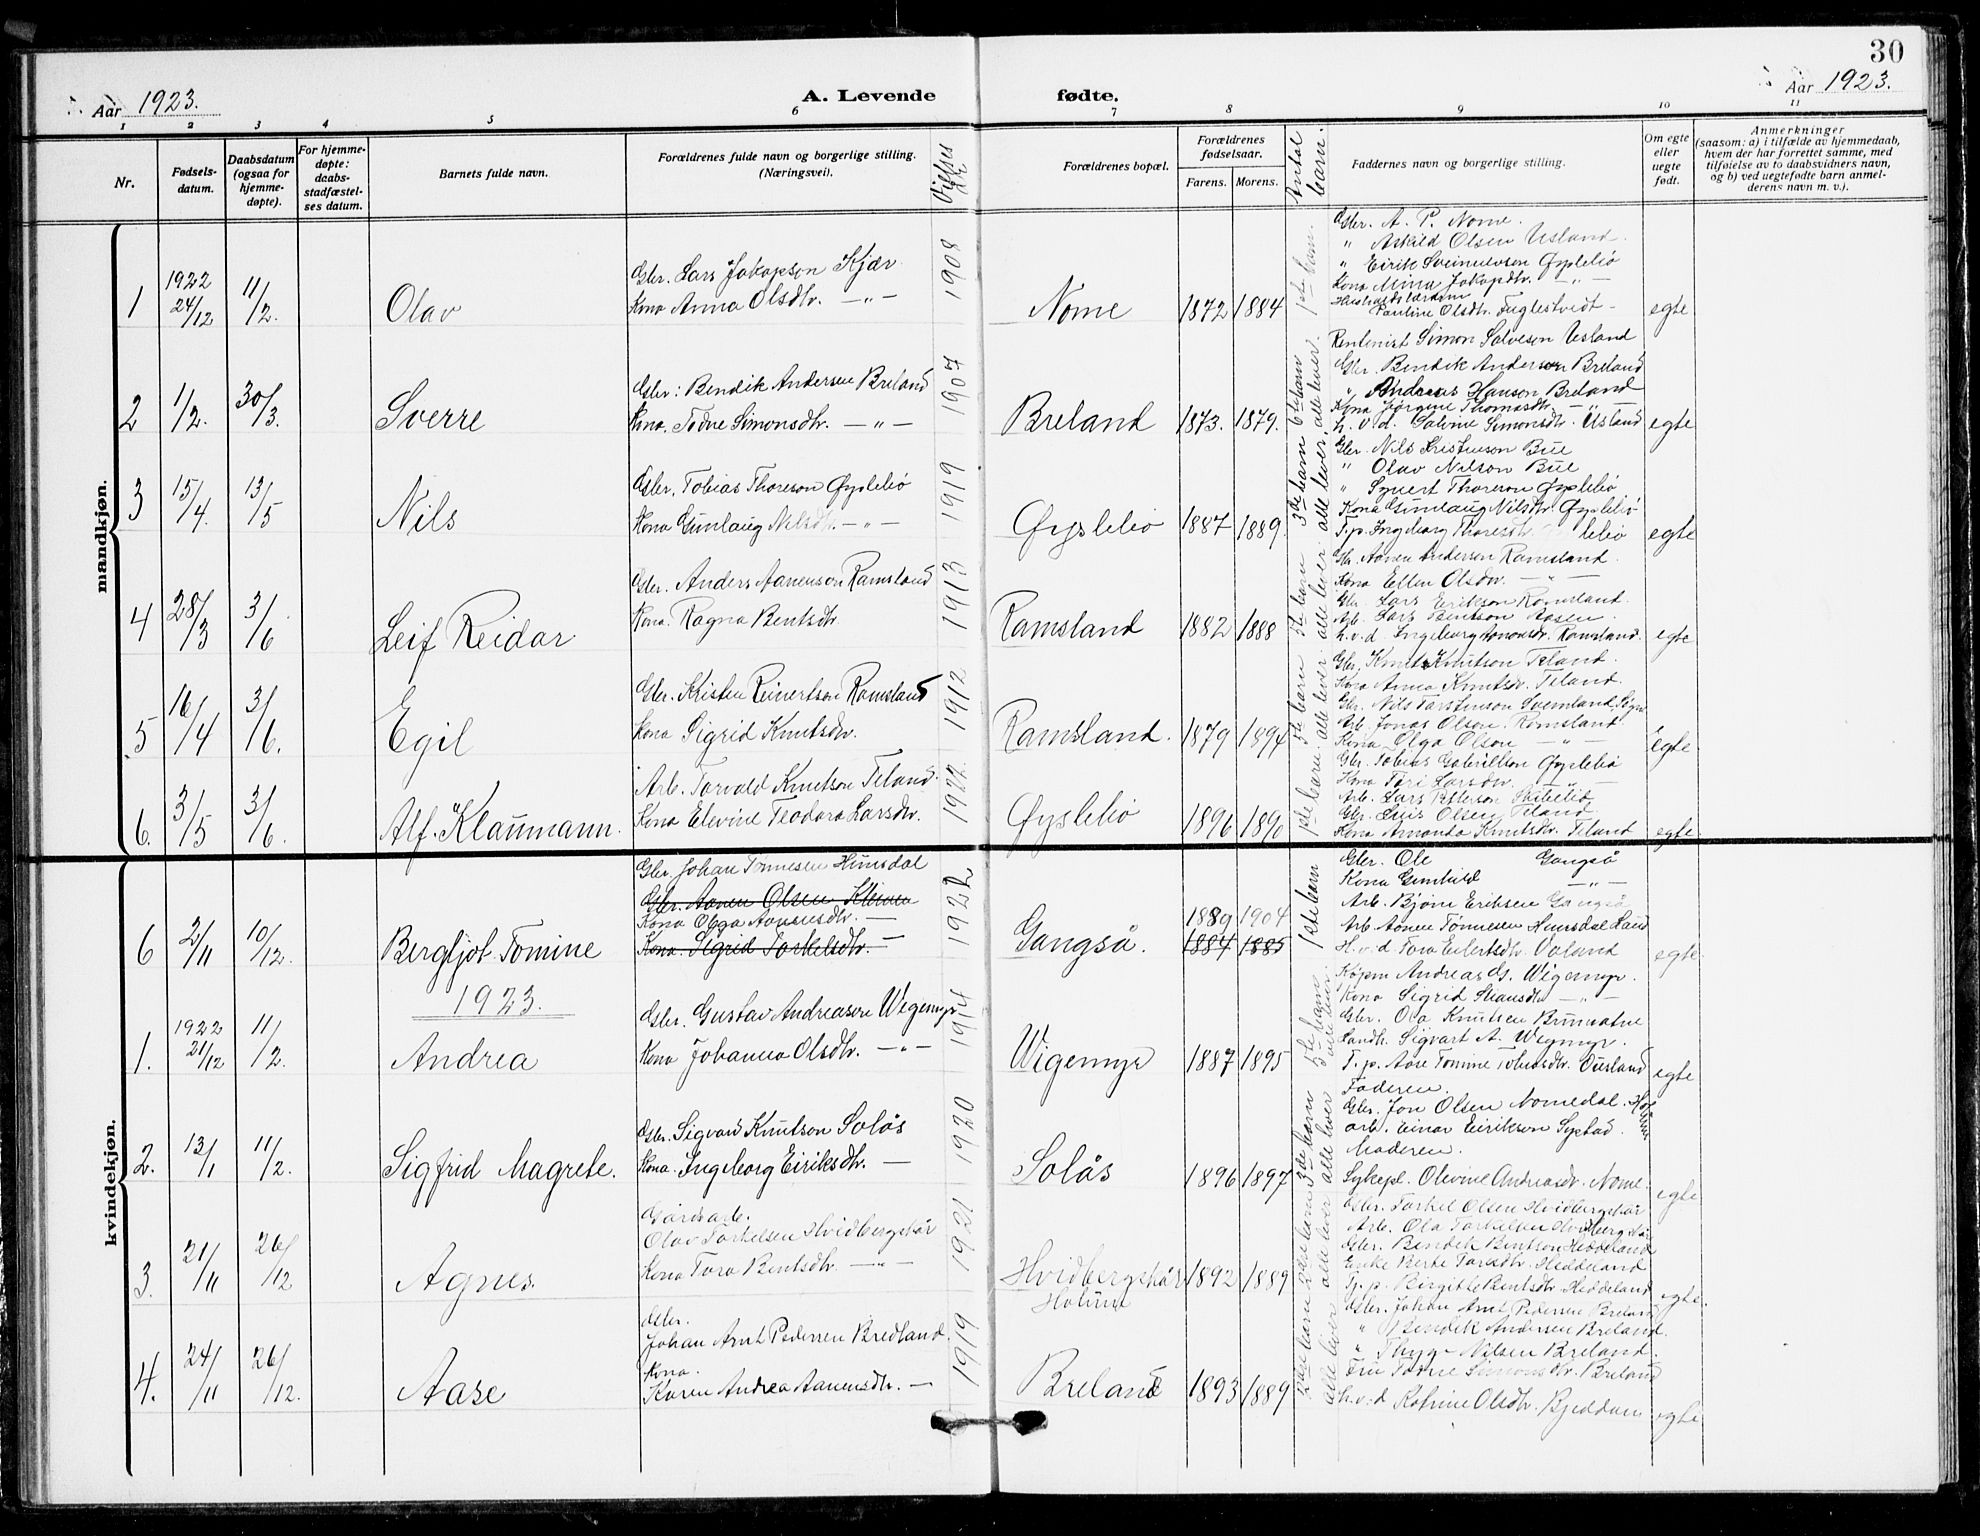 30
Aar 1923.
A. Levende fødte.
Aar 1923.
1 2 3 4 5 6 7 8 9 10 11
Nr.
Fødsels-
datum.
Daabsdatum
(ogsaa for
hjemme-
døpte).
For hjemme-
døpte:
daabs-
stadfæstel-
ses datum.
Barnets fulde navn.
Forældrenes fulde navn og borgerlige stilling.
(Næringsvei).
Forældrenes bopæl.
Forældrenes
fødselsaar.
Farens. Morens.
Antal
barn.
Faddernes navn og borgerlige stilling.
Om egte
eller
uegte
født.
Anmerkninger
(saasom: a) i tilfælde av hjemmedaab,
hvem der har forrettet samme, med
tilføielse av to daabsvidners navn,
og b) ved uegtefødte barn anmel-
derens navn m. v.).
mandkjøn.
1
1922
24/12
11/2.
Olav
Gbr. Lars Jakopson Kjær
Kona Anna Olsdtr. —"—
1908
Nome
1872 1884
1ste barn.
Gbr. A. P. Nome.
" Askild Olsen Usland.
" Eirik Sveinulvson Øyslebø
Kona Mina Jakopdtr. —"—
Pauline Olsdtr. Fuglestvedt
egte
2
1/2.
30/3.
Sverre
Gbr: Bendik Andersen Breland
Kona. Todne Simonsdtr. —"—
1907
Breland
1873. 1879.
6te barn
alle lever.
Rentenist Simon Salveson Usland
Gbr. Bendik Anderson Breland
" Andreas Hanson Breland
Kona Jørgine Thomasdtr. —
h.v.d. Salvine Simonsdtr. Usland
egte
3
15/4.
13/5
Nils
Gbr. Tobias Thoreson Øyslebø
Kona Gunlaug Nilsdtr. —"—
1919
Øyslebø
1887 1889.
3de barn
alle lever
Gbr. Nils Kristenson Bue
" Olav Nilson Bue
" Syvert Thoreson Øyslebø
Kona Gunlaug Nilsdtr. Øyslebø
T.p. Ingeborg Thoresdtr.
egte
4
28/3
3/6
Leif Reidar
Gbr. Anders Aanenson Ramsland
Kona. Ragna Bentsdtr.
1913
Ramsland
1882 1888
barn
alle lever.
Gbr. Aanen Anderson Ramsland.
Kona Ellen Olsdtr. —"—
Gbr. Lars Erikson Ramsland.
Arb. Lars Bentson Aasen.
h.v.d Ingeborg Ramsland.
egte
5
16/4
3/6.
Egil
Gbr. Kristen Reinertson Ramsland
Kona Sigrid Knutsdtr.
1912
Ramsland.
1879 1894
barn.
alle lever.
Gbr. Knut Knutson Teland.
Kona Anna Knutsdtr. Teland.
Arb. Jonas Olson. Ramsland
Kona Olga Olson —"—
egte
6.
3/5
3/6.
Alf. Klaumann.
Arb. Torvald Knutson Teland.
Kona Elevine Teodora Larsdtr.
1922.
Øyslebø
1896 1890
1ste barn.
Gbr. Tobias Gabrielson Øyslebø
Kona Tori Larsdtr. —"—
Arb. Lars Petterson
Gbr. Olsen Teland
Kona Amanda Knutsdtr. Teland
egte
kvindekjøn.
6
2/11
10/12.
Bergljot Tomine
Gbr. Johan Tønnesen Hunsdal
Gbr. Aanen Olsen Kleven
Kona Olga Aanensdtr. —
Kona. Sigrid Torkelsdtr. —
1922
Gangså.
1889 1904
1884 1885
1ste barn
Gbr. Ole Gangså
Kona Gunhild —"—
Arb. Bjørn Eriksen Gangså
Arb. Aanen Tønnesen Hunsdal
H.v.d Tora Eilertsdtr. Valand
egte.
1923.
1.
1922
21/12
11/2.
Andrea
Gbr. Gustav Andreasen Wigemyr
Kona Johanna Olsdtr. —"—
1914
Wigemyr
1887 1895
5te barn
Andreas G. Wigemyr.
Kona Sigrid —"—
Gbr. Ola Knutsen Brunvatne
Landh. Sigvart A. Wigemyr.
T.p. Aase Tomine Ousland
egte
2.
13/1
11/2.
Sigfrid Magrete.
Gbr. Sigvard Knutson Solås
Kona. Ingeborg Eiriksdtr. —
1920
Solås
1896 1897
3de barn
alle lever
Faderen.
Gbr. Jon Olsen Nomedal.
arb. Einar Eirikson Systad.
Moderen.
Sykepl. Olevine Andreasdtr. Nome.
egte
3.
21/11
26/12
Agnes.
Gårdsarb.
Olav Torkelsen Hvidbergskår
Kona Tora Bentsdtr. —"—
1921
Hvidbergskår
Holum
1892 1889
2det barn
alle lever
Gbr. Torkel Olsen Hvidbergskår
Arb. Ola Torkelsen Hvidbergskår
Gbr. Bendik Bentson Heddeland
Enke Berte Heddeland
T.p. Birgitte Bentsdtr. Heddeland
egte.
4.
24/11
26/12.
Aase
Gbr.
Johan Arnt Pedersen Bredland.
Kona.
Karen Andrea Aanensdtr. —
1919
Breland
1893 1889
2det barn
alle lever
Gbr. Johan Arnt Pedersen Breland
" Bendik Andersen Breland.
" Nilsen Breland.
Fru Todne Simonsdtr. Breland
h.v.d Katrine Olsdtr.
egte